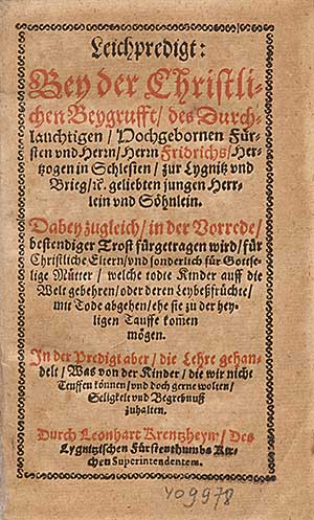 Leichpredigt:
Bey der Christli-
chen Beygrufft / des Durch-
lauchtigen / Hochgebornen Für-
sten vnd Herrn / Herrn Fridrichs / Her-
tzogen in Schlesien / zur Lygnitz vnd
Brieg / ꝛc. geliebten jungen Herr-
lein vnd Söhnlein.
Dabey zugleich / in der Vorrede /
bestendiger Trost fürgetragen wird / für
Christliche Eltern / vnd sonderlich für Gottse-
lige Mütter / welche todte Kinder auff die
Welt gebehren / oder deren Leybeßfrüchte /
mit Tode abgehen / ehe sie zu der hey-
ligen Tauffe kom̃en
mögen.
In der Predigt aber / die Lehre gehan-
delt / Was von der Kinder / die wir nicht
Teuffen können / vnd doch gerne wolten /
Seligkeit vnd Begrebnuß
zuhalten.
Durch Leonhart Krentzheym / Des
Lygnitzischen Fürstenthumbs Kir-
chen Superintendentem.
409978